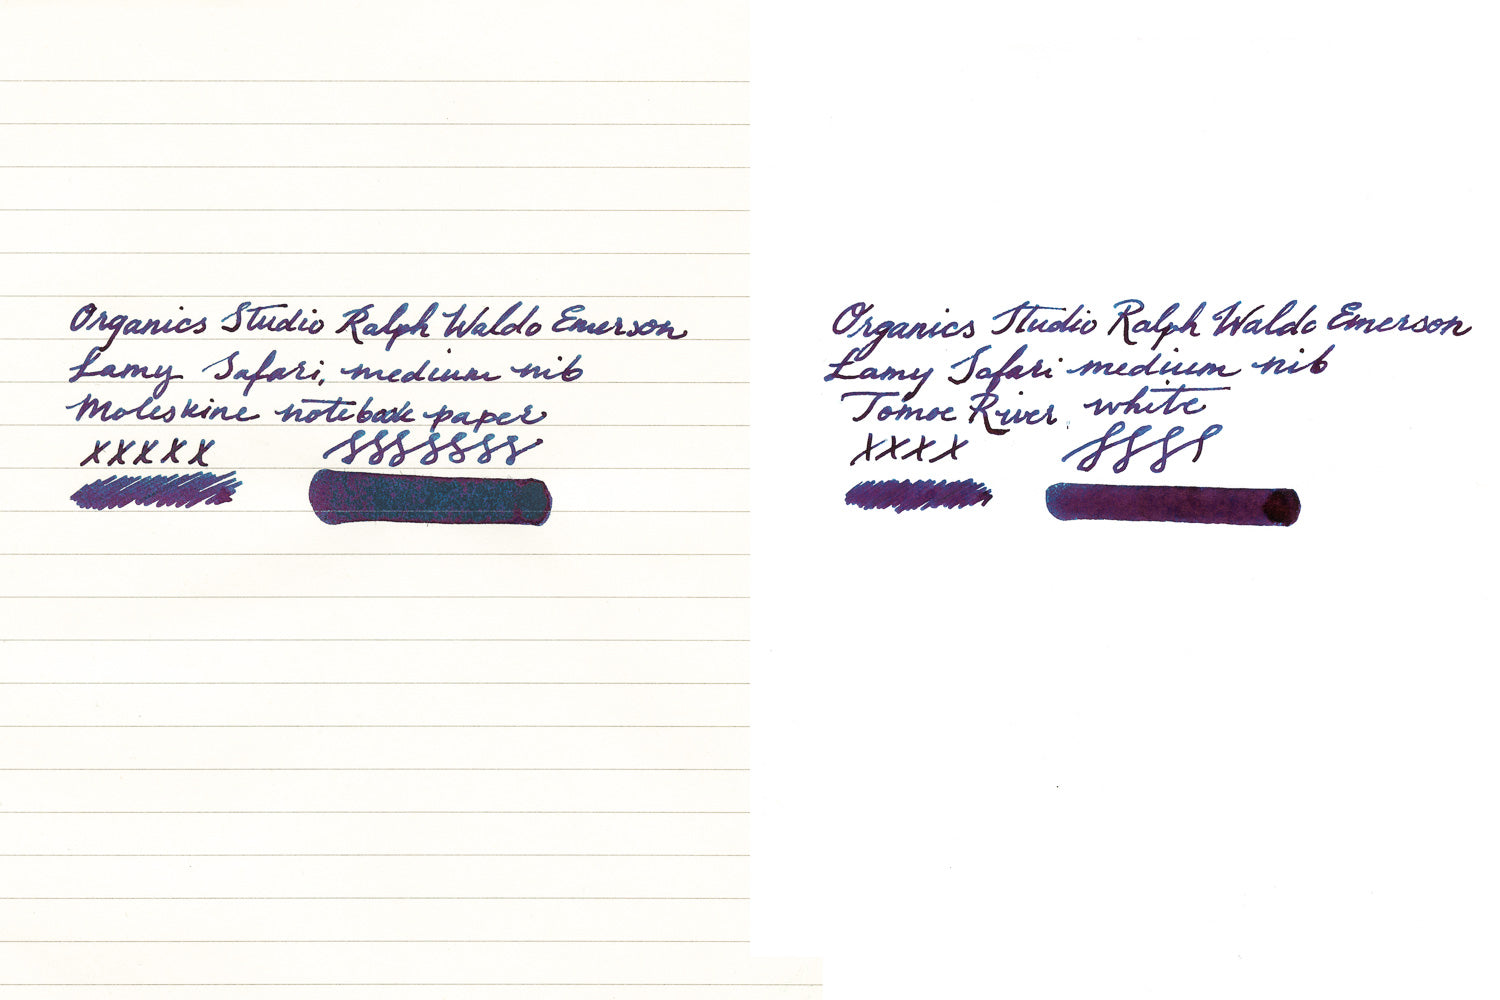 Organics Studio Ralph Waldo Emerson
Lamy Safari, medium nib
Moleskine notebook paper
xxxxx
Organics Studio Ralph Waldo Emerson
Lamy Safari medium nib
Tomoe River, white
xxxx